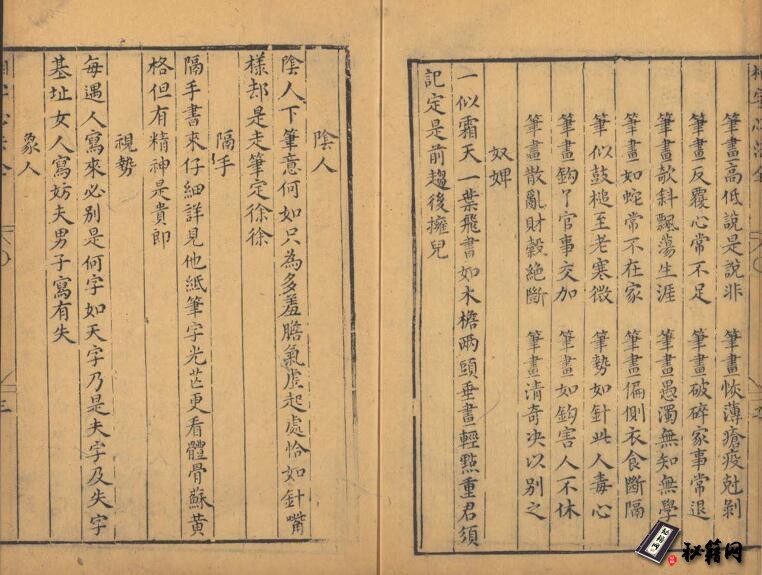 筆畫高低說是說非 筆畫恢薄瘡疫尅剝
筆畫反覆心常不足 筆畫破碎家事常退
筆畫欹斜飄蕩生涯 筆畫愚濁無知無學
筆畫如蛇常不在家 筆畫偏側衣食斷隔
筆似鼓槌至老寒微 筆勢如針此人毒心
筆畫鈎丫官事交加 筆畫如鈎害人不休
筆畫散亂財穀絕斷 筆畫清奇決以別之
奴婢
一似霜天一葉飛書如木檐兩頭垂畫輕點重君須
記定是前趨後擁兒
陰人
陰人下筆意何如只為多羞膽氣虛起處恰如針嘴
樣却是走筆定徐徐
隔手
隔手書來仔細詳見他紙筆字光芒更看體骨蘇黃
格但有精神是貴郎
視勢
每遇人寫來必別是何字如天字乃是夫字及失字
基址女人寫妨夫男子寫有失
象人
秘籍网